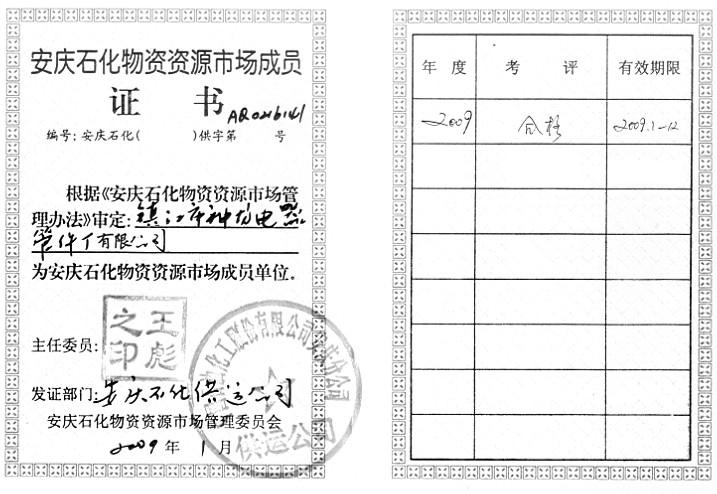 安庆石化物资资源市场成员
证 书
AQ0216141
编号：安庆石化（ ）供字第 号
根据《安庆石化物资资源市场管
理办法》审定：镇江市神力电器
管件厂有限公司
为安庆石化物资资源市场成员单位。
主任委员：
王彪
之印
发证部门：安庆石化供运公司
安庆石化物资资源市场管理委员会
2009 年 1 月
供运公司
年 度 考 评 有效期限
2009 合格 2009.1—12